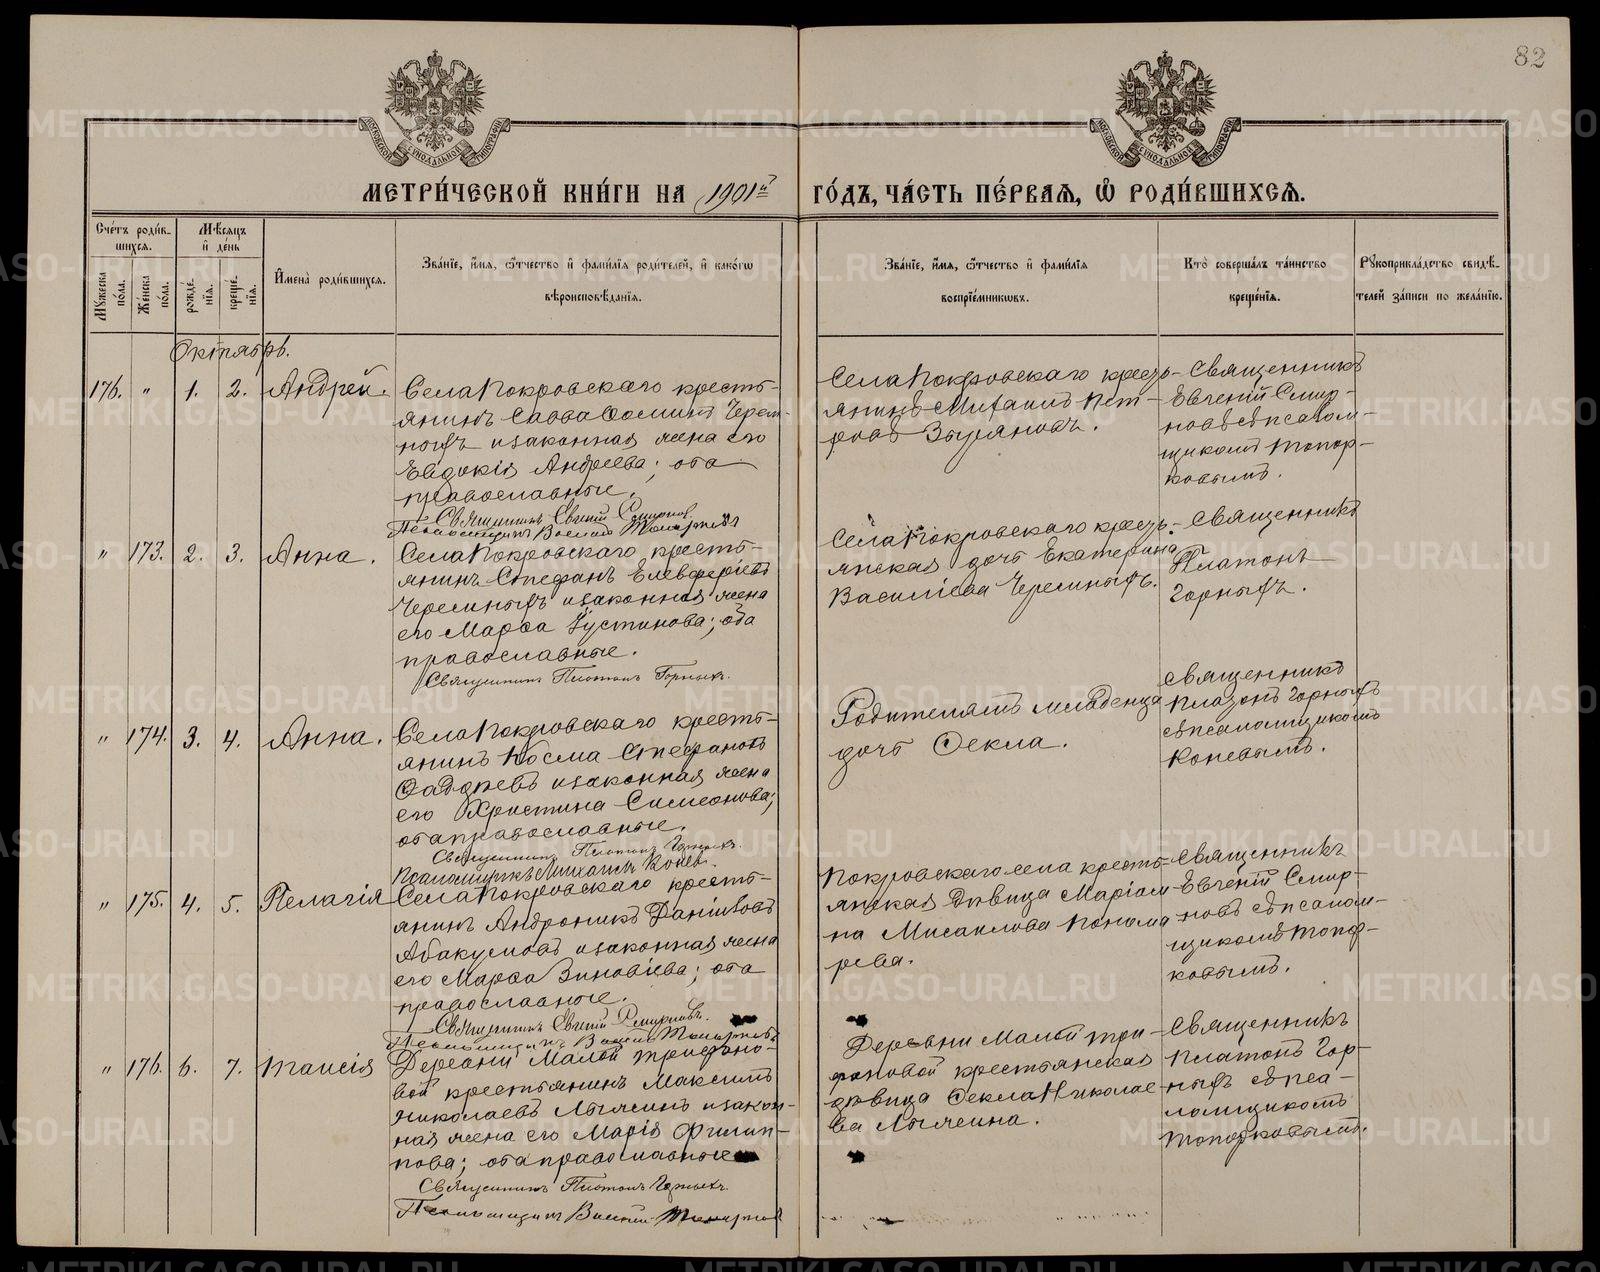 82
МОСКОВСКОЙ СУНОДАЛЬНОЙ ТИПОГРАФІИ
МОСКОВСКОЙ СУНОДАЛЬНОЙ ТИПОГРАФІИ
МЕТРИ́ЧЕСКОЙ КНИ́ГИ НА 1901й ГО́ДЪ, ЧА́СТЬ ПЕ́РВАѦ, Ѡ҆ РОДИ́ВШИХСѦ.
Сче́тъ роди́в-
шихсѧ.
Мѣ́сѧцъ
и҆ де́нь
Мꙋжеска по́ла.
Же́нска по́ла.
рожде́нїѧ.
креще́нїѧ.
И҆мена̀ роди́вшихсѧ.
Зва́нїе, и҆́мѧ, ѻ҆́тчество и҆ фами́лїѧ роди́телей, и҆ како́гѡ
вѣроисповѣ́данїѧ.
Зва́нїе, и҆́мѧ, ѻ҆́тчество и҆ фами́лїѧ
воспрїе́мникѡвъ.
Кто̀ соверша́лъ та́инство
креще́нїѧ.
Рꙋкоприкла́дство свидѣ́-
телей за́писи по жела́нїю.
Октябрь.
176. " 1. 2. Андрей.
Села Покровскаго кресть-
янинъ Савва Ѳоминъ Черем-
ныхъ и законная жена его
Евдокія Андреева; оба
православные.
Священникъ Евгеній Смирновъ
Псаломщикъ Василій Топорковъ
Села Покровскаго кресть-
янинъ Михаилъ Пет-
ровъ Зыряновъ.
Священникъ
Евгеній Смир-
новъ съ псалом-
щикомъ Топор-
ковымъ.
" 173. 2. 3. Анна.
Села Покровскаго кресть-
янинъ Стефанъ Елевферіевъ
Черемныхъ и законная жена
его Марѳа Іустинова; оба
православные.
Священникъ Платонъ Горныхъ.
Села Покровскаго кресть-
янская дочь Екатерина
Василіева Черемныхъ.
Священникъ
Платонъ
Горныхъ.
" 174. 3. 4. Анна.
Села Покровскаго кресть-
янинъ Косма Стефановъ
и законная жена
его Христина Симеонова;
оба православные.
Священникъ Платонъ Горныхъ.
Псаломщикъ Михаилъ Коневъ.
Родителямъ младенца
дочь Ѳекла.
Священникъ
Платонъ Горныхъ
съ псаломщикомъ
Коневымъ.
" 175. 4. 5. Пелагія
Села Покровскаго кресть-
янинъ Андроникъ Даніиловъ
Абакумовъ и законная жена
его Марѳа Зиновіева; оба
православные.
Священникъ Евгеній Смирновъ.
Псаломщикъ Василій Топорковъ
Покровскаго села кресть-
янская дѣвица Маріам-
на Мисаилова Понома-
рева.
Священникъ
Евгеній Смир-
новъ съ псалом-
щикомъ Топор-
ковымъ.
" 176. 6. 7. Таисія
Деревни Малой Трифоно-
вой крестьянинъ Максимъ
Николаевъ и закон-
ная жена его Марія Филип-
пова; оба православные
Священникъ Платонъ Горныхъ.
Псаломщикъ Василій Топорковъ
Деревни Малой Три-
фоновой крестьянская
дѣвица Ѳекла Николае-
ва
Священникъ
Платонъ Гор-
ныхъ съ пса-
ломщикомъ
Топорковымъ.
METRIKI.GASO-URAL.RU